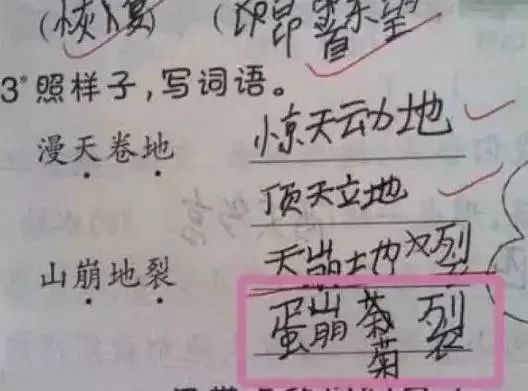 3*照样子,写词语。
漫天卷地 惊天动地
顶天立地
山崩地裂 天崩地裂
蛋崩菊裂